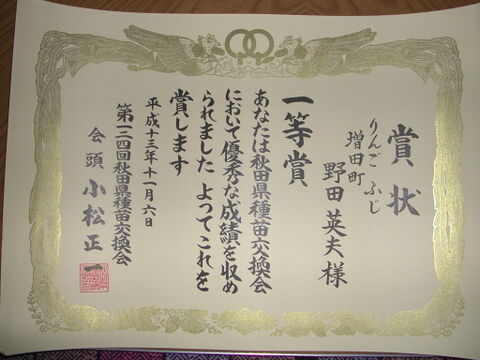 賞状
りんご ふじ
増田町
野田英夫様
一等賞
あなたは秋田県種苗交換会
において優秀な成績を収め
られました よってこれを
賞します
平成十三年十一月六日
第一二四回秋田県種苗交換会
会頭 小松正一